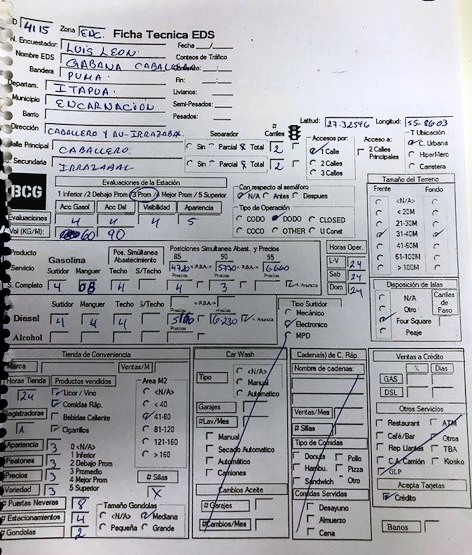 4115 Zona ENC. Ficha Tecnica EDS
N. Encuestador LUIS LEON. Fecha
Nombre EDS GABANA CABALLERO Conteos de Tráfico
Bandera PUMA.
Departam. ITAPUA. Fin:
Municipio ENCARNACION Livianos:
Barrio Semi-Pesados:
Pesados:
Dirección CABALLERO Y AV-IRRAZABAL Separador # Carriles Latitud: Longitud:
Calle Principal CABALLERO. Sin Parcial Total 2
Secundaria IRRAZABAL Sin Parcial Total 2
Accesos por: 1 Calle 2 Calles 3 Calles
Acceso a: 2 Calles Principales
T Ubicación C. Urbana HiperMerc Carretera
BCG
Evaluaciones de la Estación
1 Inferior /2 Debajo Prom /3 Prom /4 Mejor Prom / 5 Superior
Acc Gasol Acc Del Visibilidad Apariencia
Evaluaciones 4 4 4 5
Vol (KG/M): 60 90
Con respecto al semáforo
N/A Antes Despues
Tipo de Operación
CODO DODO CLOSED
COCO OTHER U Const
Tamaño del Terreno
Frente Fondo
<N/A>
< 20M
21-30M
31-40M
41-60M
61-100M
> 100M
Producto Gasolina Pos. Simultánea Abastecimiento Posiciones Simultanea Abast. y Precios
85 90 95
Servicio Surtidor Manguer Techo S/Techo 5770 6.660
S. Completo 4 08 4 4 3
Horas Oper.
L-V 24
Sab 24
Dom 24
Surtidor Manguer Techo S/Techo
Diesel 4 4 4 6.230
Alcohol
Tipo Surtidor
Mecánico
Electronico
MPD
Disposición de Islas
N/A
Otro
Four Square
Peaje
Carriles de Paso
Tienda de Conveniencia
Marca Ventas/M
Horas Tienda Productos vendidos Area M2
24 Licor / Vino <N/A>
Comidas Ráp. < 40
Registradoras Bebidas Caliente 41-80
1 Cigarrillos 81-120
121-160
> 160
Apariencia 3 0 <N/A>
Peatones 3 1 Inferior
2 Debajo Prom
Precios 3 3 Promedio
4 Mejor Prom
Variedad 3 5 Superior
# Sillas X
# Puertas Neveras 8
# Estacionamientos 4
# Gondolas 2
Tamaño Gondolas
<N/A> Mediana
Pequeña Grande
Car Wash
Tipo <N/A>
Manual
Automatico
Garajes
#Lav/Mes
Manual
Secado Automatico
Automático
Camiones
Cambios Aceite
# Garajes
#Cambios/Mes
Cadena(s) de C. Ráp.
Nombre de cadenas:
Ventas/Mes
# Sillas
Tipo de Comidas
Donuts Pollo
Hambu. Pizza
Sandwich Otro
Comidas Servidas
Desayuno
Almuerzo
Cena
Ventas a Crédito
% Dias
GAS
DSL
Otros Servicios
Restaurant ATM
Café/Bar Otros
Rep Llantas TBA
C.A. Camión Kiosko
GLP
Acepta Tarjetas
Crédito
Banos